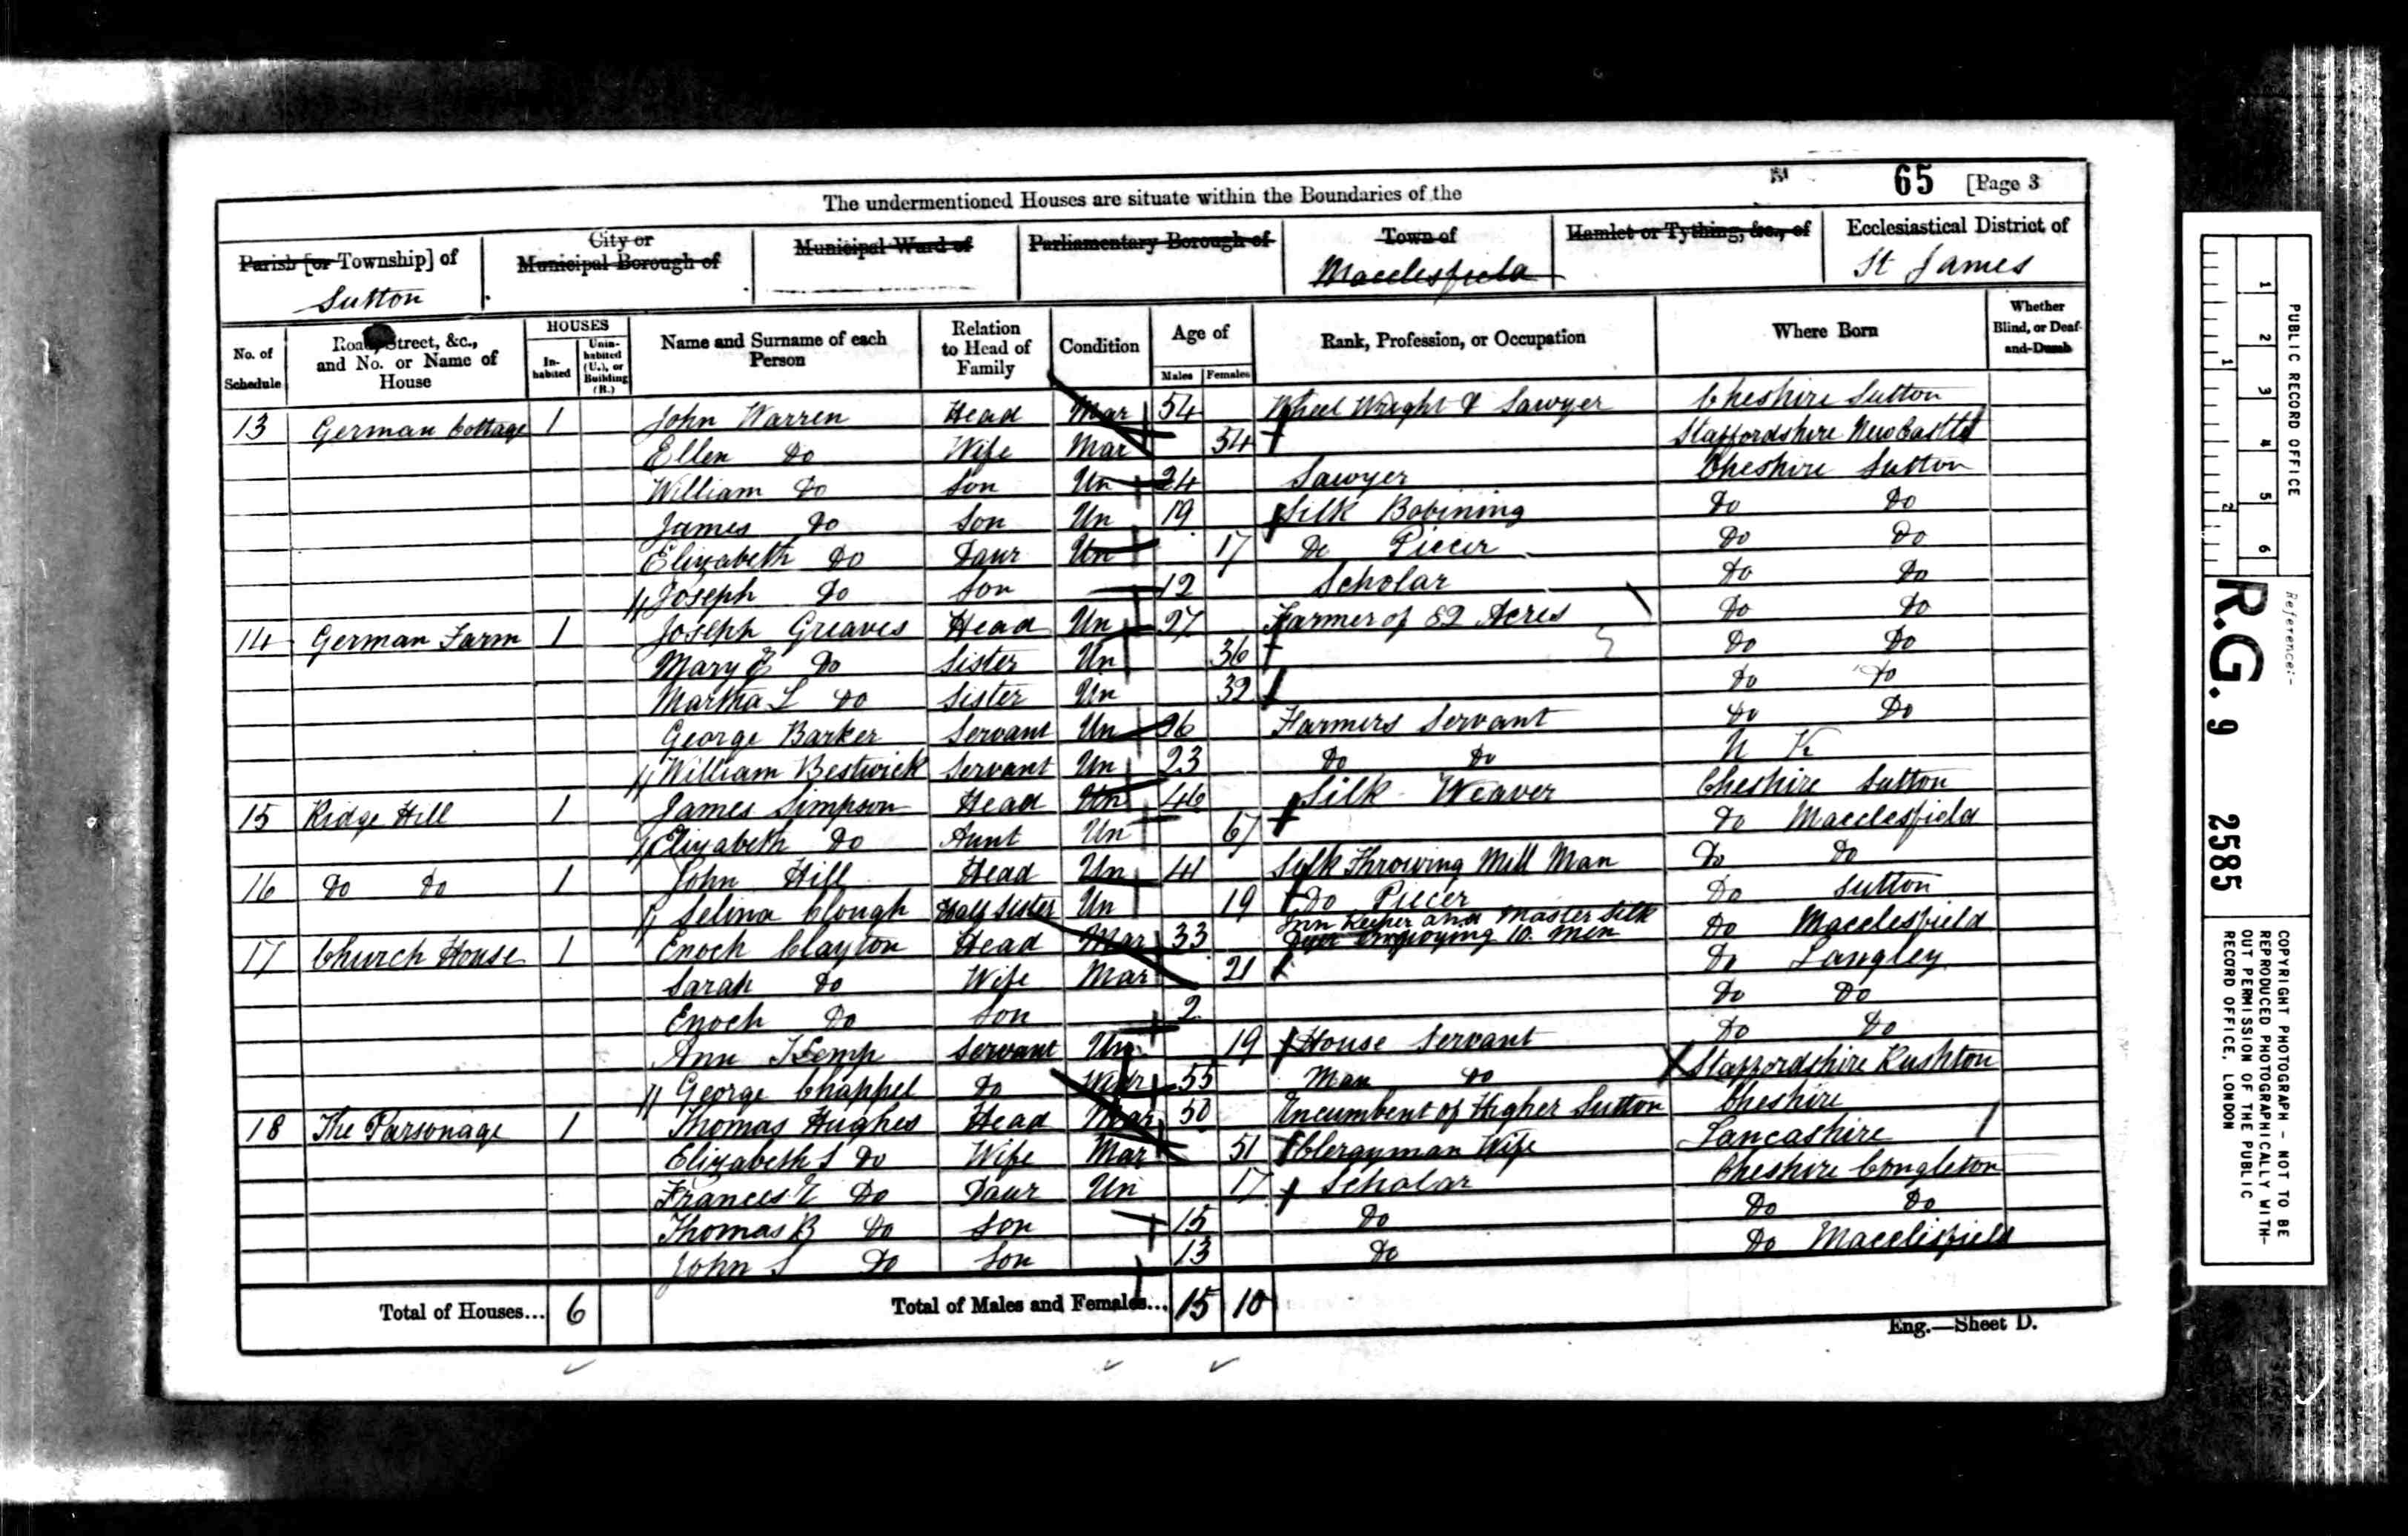 The undermentioned Houses are situate within the Boundaries of the
65 [Page 3
Parish [or Township] of
Sutton
City or
Municipal Borough of
Municipal Ward of
Parliamentary Borough of
Town of
Macclesfield
Hamlet or Tything, &c., of
Ecclesiastical District of
St James
No. of Schedule
Road, Street, &c., and No. or Name of House
HOUSES
In-habited
Unin-habited (U.), or Building (B.)
Name and Surname of each Person
Relation to Head of Family
Condition
Age of
Males
Females
Rank, Profession, or Occupation
Where Born
Whether Blind, or Deaf-and-Dumb
13 German Cottage 1 John Warren Head Mar 54 Wheel Wright & Sawyer Cheshire Sutton
Ellen Do Wife Mar 54 Staffordshire NewCastle
William Do Son Un 24 Sawyer Cheshire Sutton
James Do Son Un 19 Silk Bobining Do Do
Elizabeth Do Daur Un 17 Do Piecer Do Do
Joseph Do Son 12 Scholar Do Do
14 German Farm 1 Joseph Greaves Head Un 27 Farmer of 82 Acres Do Do
Mary E Do Sister Un 36 Do Do
Martha L Do Sister Un 32 Do Do
George Barker Servant Un 26 Farmers Servant Do Do
William Bestwick Servant Un 23 Do Do N K
15 Ridge Hill 1 James Simpson Head Un 46 Silk Weaver Cheshire Sutton
Elizabeth Do Aunt Un 67 Do Macclesfield
16 Do Do 1 John Hill Head Un 41 Silk Throwing Mill Man Do Do
Selina Clough Half Sister Un 19 Do Piecer Do Sutton
17 Church House 1 Enoch Clayton Head Mar 33 Inn Keeper and Master Silk
Dyer employing 10 men Do Macclesfield
Sarah Do Wife Mar 21 Do Langley
Enoch Do Son 2 Do Do
Ann Kemp Servant Un 19 House Servant Do Do
George Chappel Do Widr 55 Man Do Staffordshire Rushton
18 The Parsonage 1 Thomas Hughes Head Mar 50 Incumbent of Higher Sutton Cheshire
Elizabeth S Do Wife Mar 51 Clergyman Wife Lancashire
Frances E Do Daur Un 17 Scholar Cheshire Congleton
Thomas B Do Son 15 Do Do Do
John S Do Son 13 Do Do Macclesfield
Total of Houses... 6
Total of Males and Females... 15 10
Eng.—Sheet D.
PUBLIC RECORD OFFICE
1 2 3 4 5 6
1 2
Reference:-
R.G. 9 2585
COPYRIGHT PHOTOGRAPH - NOT TO BE
REPRODUCED PHOTOGRAPHICALLY WITH-
OUT PERMISSION OF THE PUBLIC
RECORD OFFICE, LONDON